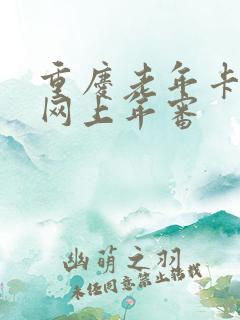 重庆老年卡
网上年审
幽萌之羽
未经同意禁止转载